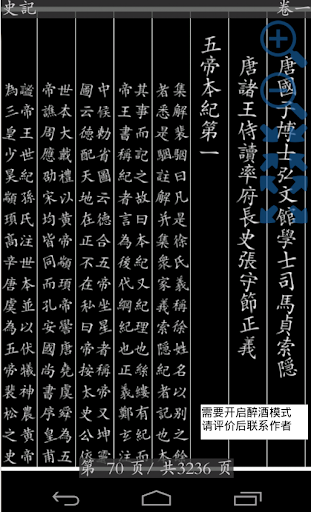 史記
卷一
唐國子博士弘文館學士司馬貞索隱
唐諸王侍讀率府長史張守節正義
五帝本紀第一
集解裴駰曰凡是徐氏義稱徐姓名以別之餘
者悉是駰註解并集衆家義索隱紀者記也本
其事而記之故曰本紀又紀理也絲縷有紀而
帝王書稱紀者言為後代綱紀也正義鄭玄注
中候勑省圖云德合五帝坐星者稱帝又坤靈
圖云德配天地在正不在私曰帝按太史公依
世本大戴禮以黃帝顓頊帝嚳唐堯虞舜為五
帝譙周應劭宋均皆同而孔安國尚書序皇甫
謐帝王世紀孫氏注世本並以伏犧神農黃帝
為三皇少昊顓頊高辛唐虞為五帝裴松之史
需要开启醉酒模式
请评价后联系作者
第 70 页/ 共3236 页